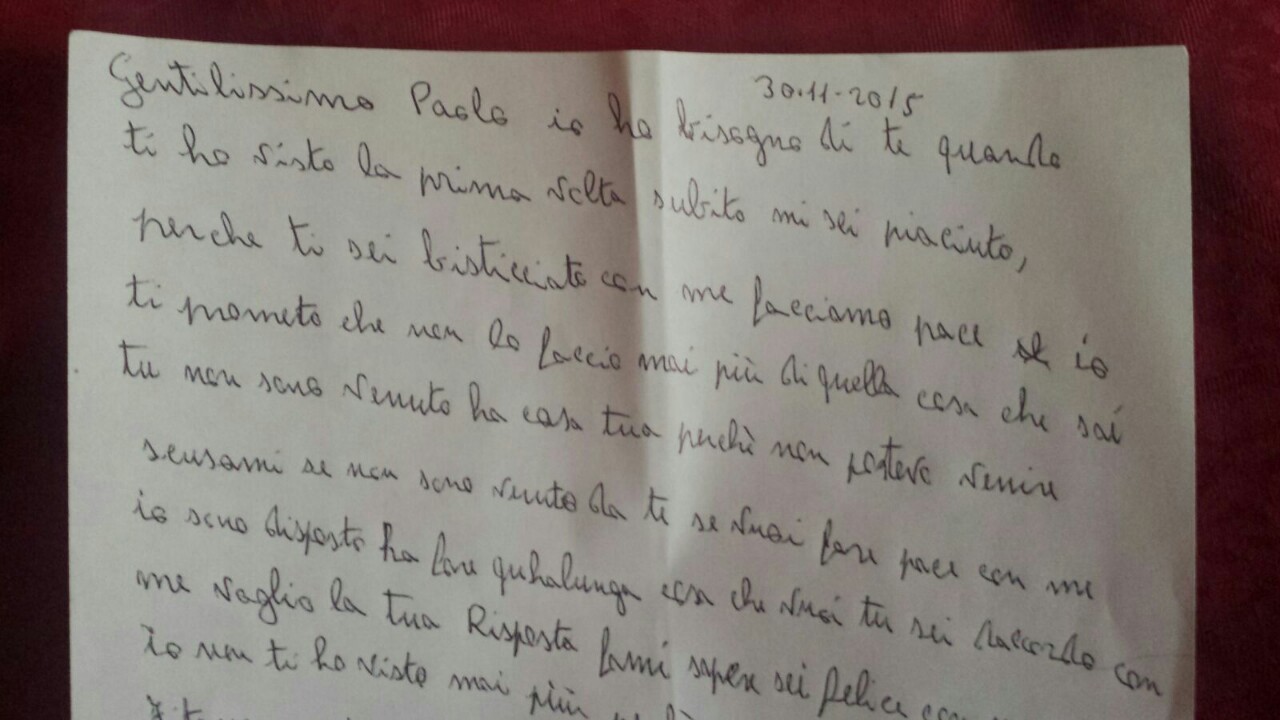 30.11-2015
Gentilissimo Paolo io ho bisogno di te quando
ti ho visto la prima volta subito mi sei piaciuto,
perche ti sei bisticciato con me facciamo pace io
ti prometo che non lo faccio mai più di quella cosa che sai
tu non sono venuto ha casa tua perchè non potevo venire
scusami se non sono venuto da te se vuoi fare pace con me
io sono disposto ha fare quhalunqa cosa che vuoi tu sei daccordo con
me voglio la tua Risposta fami sapere sei felice
io non ti ho visto mai più